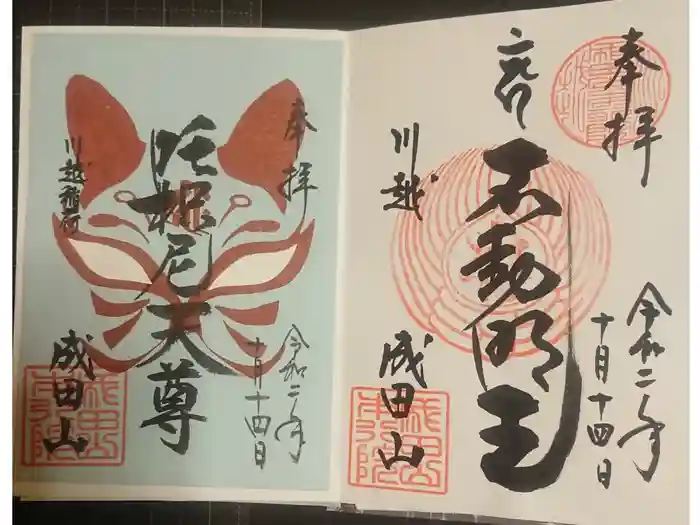 奉拝
不動明王
川越
成田山
令和二年
十月十四日
奉拝
吒枳尼天尊
川越稲荷
成田山
令和二年
十月十四日